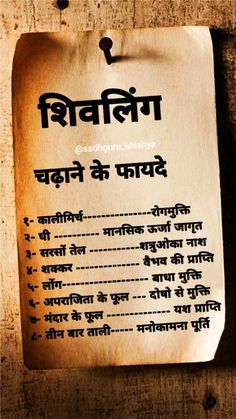 शिवलिंग
@sadhguru_shishya
चढ़ाने के फायदे
१- कालीमिर्च---------------रोगमुक्ति
२- घी ----------- मानसिक ऊर्जा जागृत
३- सरसों तेल -------------शत्रुओका नाश
४- शक्कर ---------------- वैभव की प्राप्ति
५- लौंग------------------- बाधा मुक्ति
६- अपराजिता के फूल --- दोषो से मुक्ति
७- मंदार के फूल ----------- यश प्राप्ति
८- तीन बार ताली----- मनोकामना पूर्ति